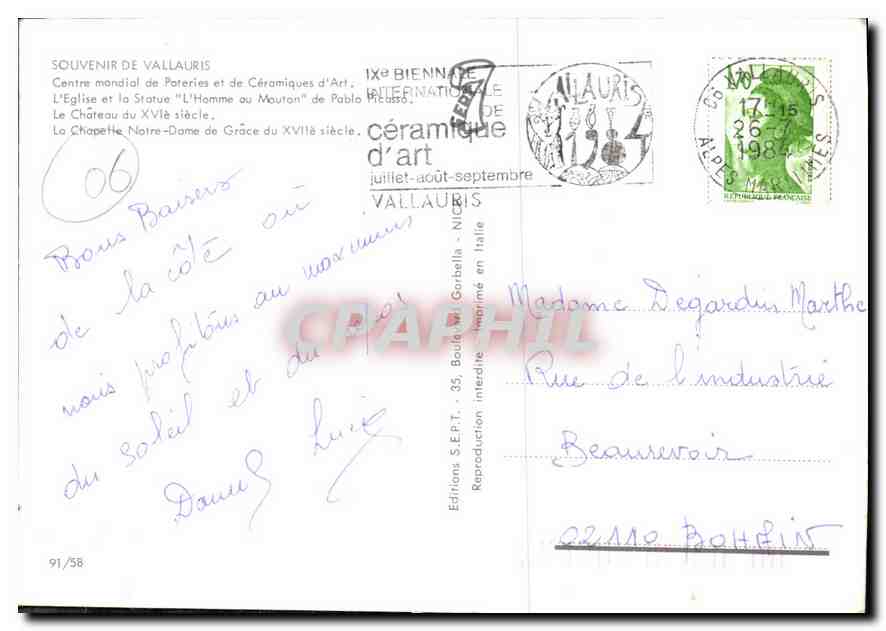 SOUVENIR DE VALLAURIS
Centre mondial de Poteries et de Céramiques d'Art.
L'Eglise et la Statue "L'Homme au Mouton" de Pablo Picasso.
Le Château du XVIè siècle.
La Chapelle Notre-Dame de Grâce du XVIIè siècle.
06
IXe BIENNALE
INTERNATIONALE
DE
céramique
d'art
juillet-août-septembre
VALLAURIS
VALLAURIS
1984
VALLAURIS
17 H 15
26-7
1984
ALPES MARITIMES
REPUBLIQUE FRANÇAISE
Bons Baisers
de la côte où
nous profitons au maximum
du soleil et du
Lucie
Editions S.E.P.T. - 35, Boulevard Gorbella - NICE
Reproduction interdite - Imprimé en Italie
CPAPHIL
Madame Degardin Marthe
Rue de l'industrie
Beaurevoir
02110 BOHAIN
91/58